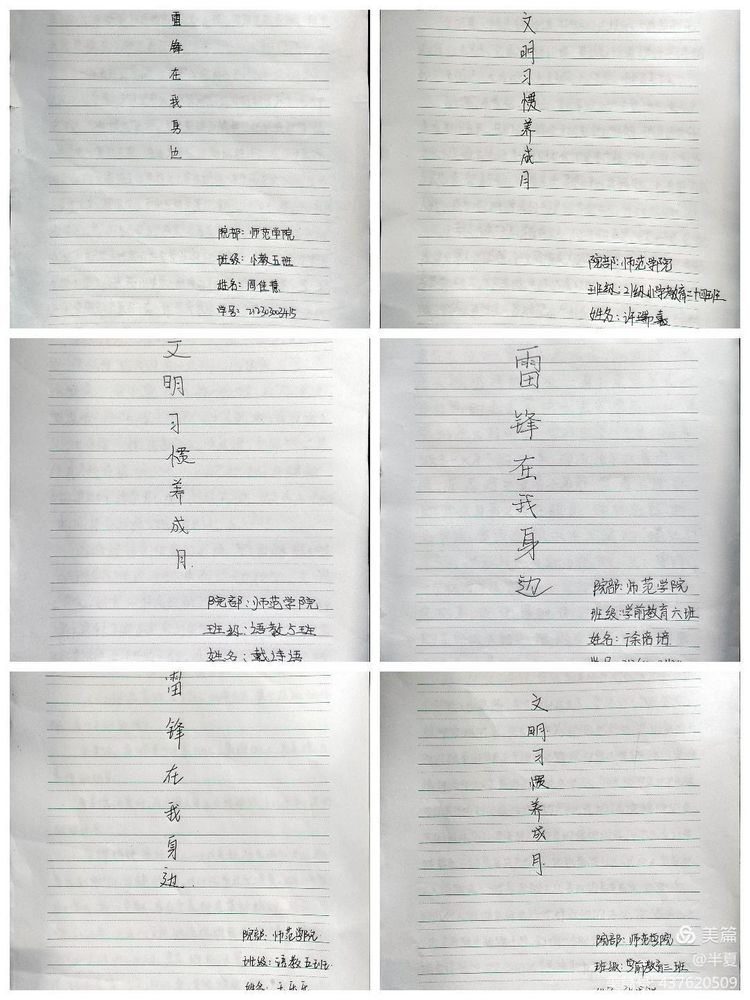 雷锋在我身边
院部：师范学院
班级：小教五班
姓名：周佳慧
学号：21230300345
文明习惯养成月
院部：师范学院
班级：21级小学教育二十四班
姓名：许瑞嘉
文明习惯养成月
院部：师范学院
班级：语教5班
姓名：戴诗语
雷锋在我身边
院部：师范学院
班级：学前教育六班
姓名：徐蓓培
雷锋在我身边
院部：师范学院
班级：语教五班
姓名：
文明习惯养成月
院部：师范学院
班级：学前教育三班
美篇
@半夏
437620509